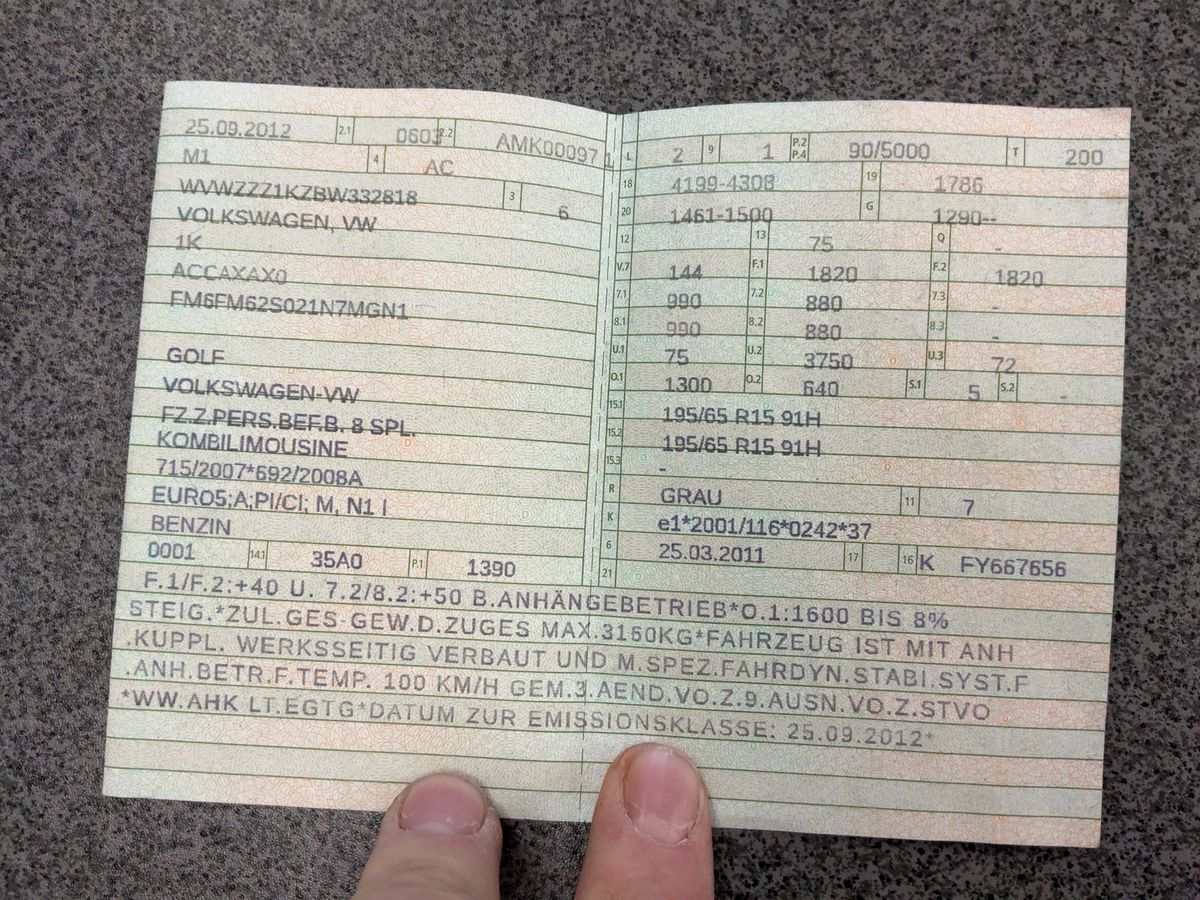 25.09.2012 2.1 0603 2.2 AMK00097 1
M1 4 AC
WVWZZZ1KZBW332818 3 6
VOLKSWAGEN, VW
1K
ACCAXAX0
FM6FM62S021N7MGN1
GOLF
VOLKSWAGEN-VW
FZ.Z.PERS.BEF.B. 8 SPL.
KOMBILIMOUSINE
715/2007*692/2008A
EURO5;A;PI/CI; M, N1 I
BENZIN
0001 14.1 35A0 P.1 1390
L 2 9 1 P.2 P.4 90/5000 T 200
18 4199-4308 19 1786
20 1461-1500 G 1290--
12 13 75 Q -
V.7 144 F.1 1820 F.2 1820
7.1 990 7.2 880 7.3 -
8.1 990 8.2 880 8.3 -
U.1 75 U.2 3750 U.3 72
O.1 1300 O.2 640 S.1 5 S.2 -
15.1 195/65 R15 91H
15.2 195/65 R15 91H
15.3 -
R GRAU 11 7
K e1*2001/116*0242*37
6 25.03.2011 17 16 K FY667656
21
F.1/F.2:+40 U. 7.2/8.2:+50 B.ANHÄNGEBETRIEB*O.1:1600 BIS 8%
STEIG.*ZUL.GES-GEW.D.ZUGES MAX.3150KG*FAHRZEUG IST MIT ANH
.KUPPL. WERKSSEITIG VERBAUT UND M.SPEZ.FAHRDYN.STABI.SYST.F
.ANH.BETR.F.TEMP. 100 KM/H GEM.3.AEND.VO.Z.9.AUSN.VO.Z.STVO
*WW.AHK LT.EGTG*DATUM ZUR EMISSIONSKLASSE: 25.09.2012*